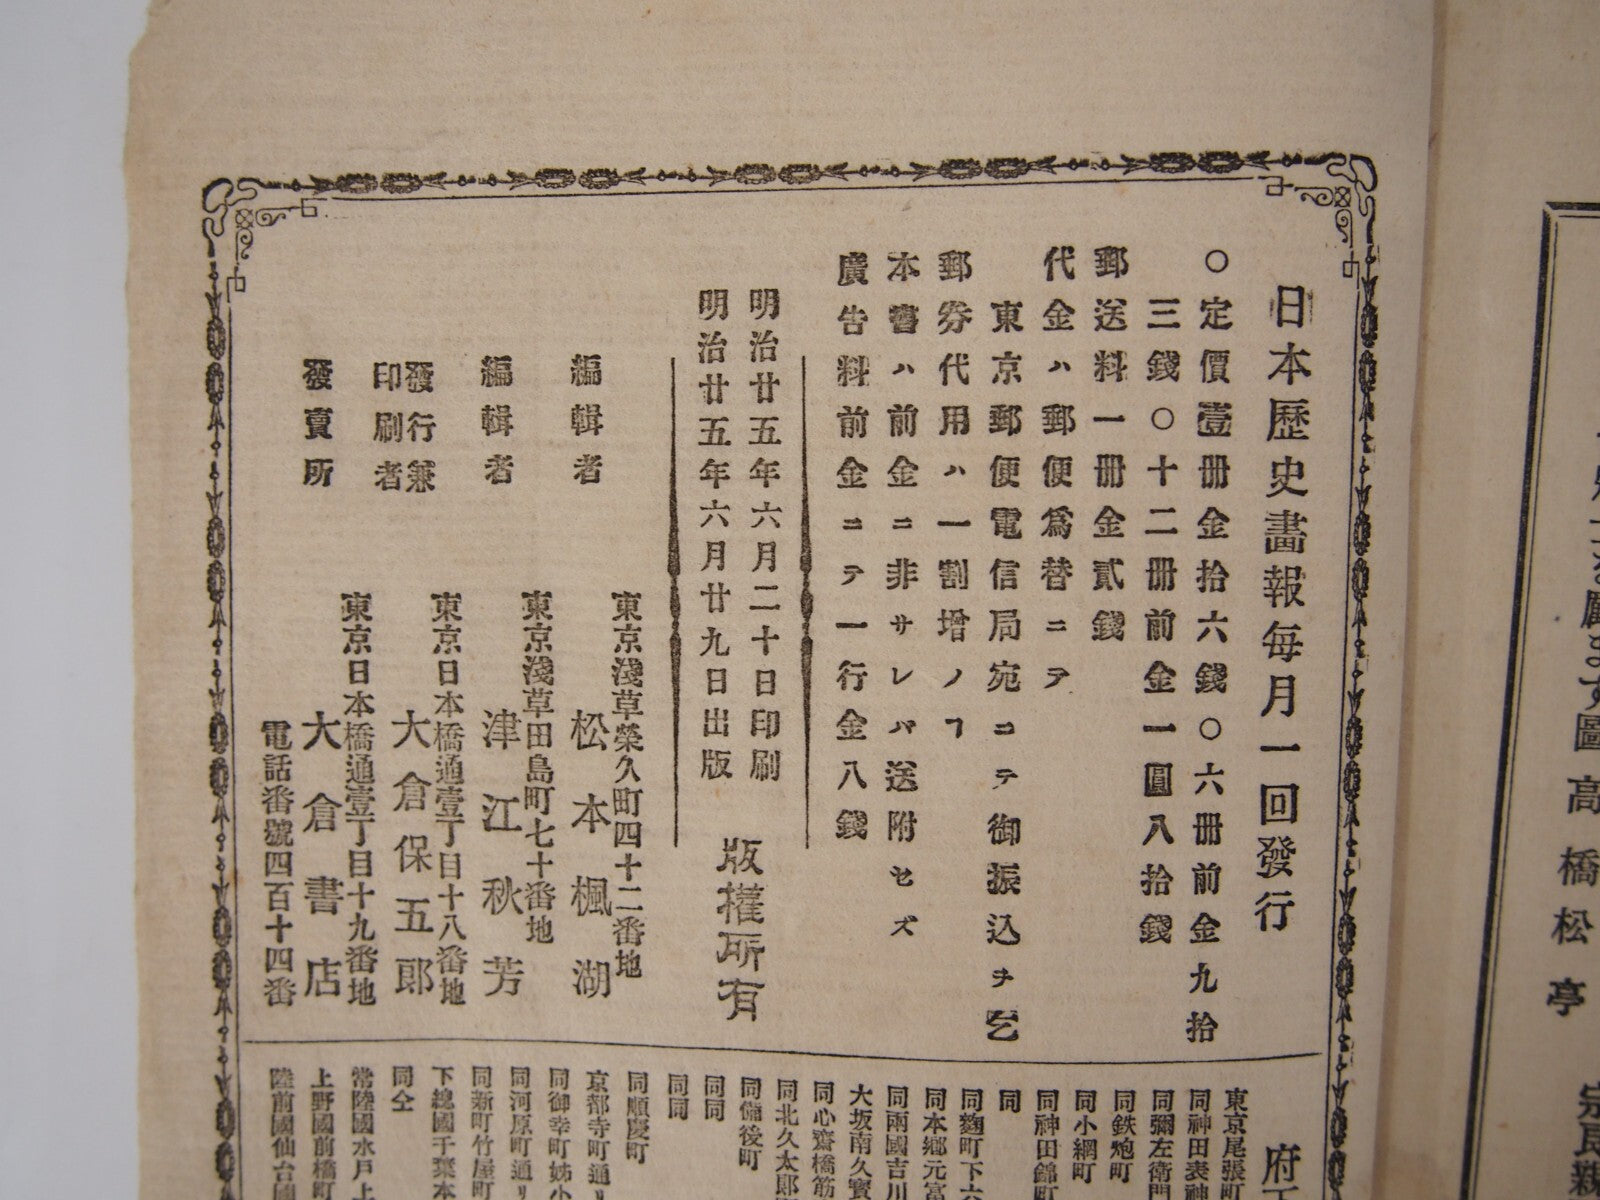 日本歷史畫報每月一回發行
○定價壹册金拾六錢○六册前金九拾
三錢○十二册前金一圓八拾錢
郵送料一册金貳錢
代金ハ郵便爲替ニテ
東京郵便電信局宛ニテ御振込ヲ乞
郵券代用ハ一割增ノヿ
本書ハ前金ニ非サレバ送附セズ
廣告料前金ニテ一行金八錢
明治廿五年六月二十日印刷
明治廿五年六月廿九日出版
版權所有
東京淺草榮久町四十二番地
編輯者 松本楓湖
東京淺草田島町七十番地
編輯者 津江秋芳
東京日本橋通壹丁目十八番地
發行兼印刷者 大倉保五郎
東京日本橋通壹丁目十九番地
發賣所 大倉書店
電話番號四百十四番
府
東京尾張町
同神田表神
同彌左衛門
同鉄炮町
同小網町
同神田錦町
同
同麴町下六
同本鄉元富
同兩國吉川
大坂南久寶
同心齋橋筋
同北久太郎
同備後町
同同
同同
同順慶町
京都寺町通リ
同御幸町姊小
同河原町通リ
同新町竹屋町
下總國千葉本
同仝
常陸國水戸上
上野國前橋町
陸前國仙台國
圖 高橋松亭
宗民親